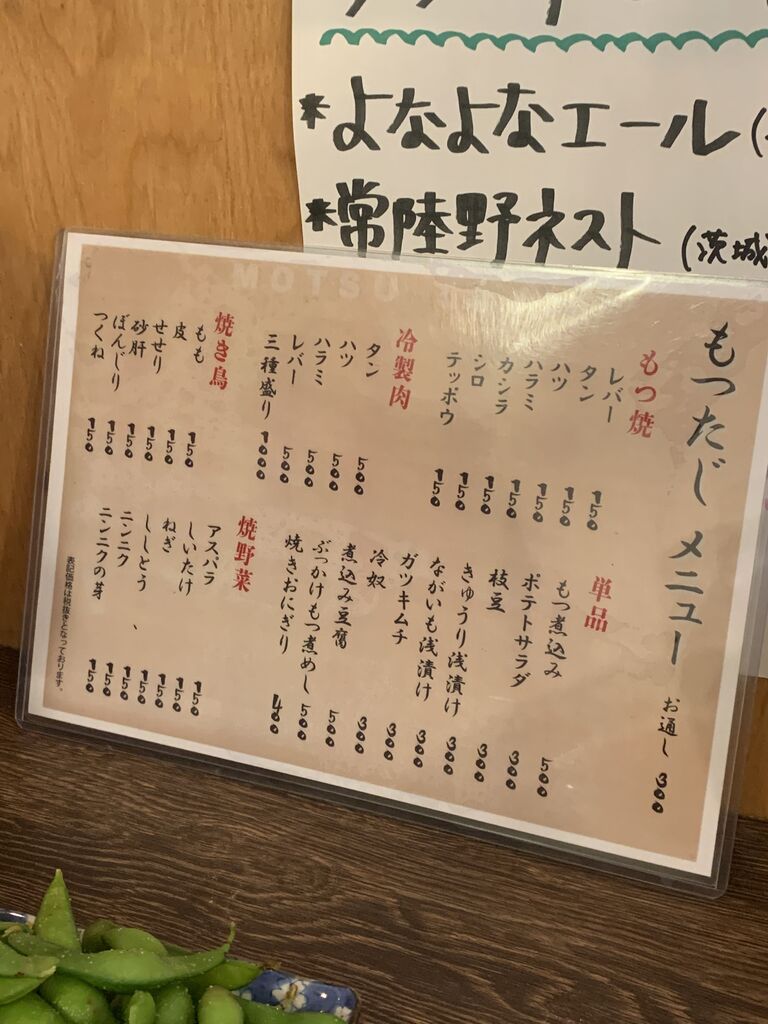 *よなよなエール(
*常陸野ネスト(茨城
MOTSU
もつたじ メニュー
お通し 300
もつ焼
レバー 150
タン 150
ハツ 150
ハラミ 150
カシラ 150
シロ 150
テッポウ 150
冷製肉
タン 500
ハツ 500
ハラミ 500
レバー 500
三種盛り 1000
焼き鳥
もも 150
皮 150
せせり 150
砂肝 150
ぼんじり 150
つくね 150
単品
もつ煮込み 500
ポテトサラダ 300
枝豆 300
きゅうり浅漬け 300
ながいも浅漬け 300
ガツキムチ 300
冷奴 300
煮込み豆腐 500
ぶっかけもつ煮めし 500
焼きおにぎり 400
焼野菜
アスパラ 150
しいたけ 150
ねぎ 150
ししとう 150
、 150
ニンニク 150
ニンニクの芽 150
表記価格は税抜きとなっております。